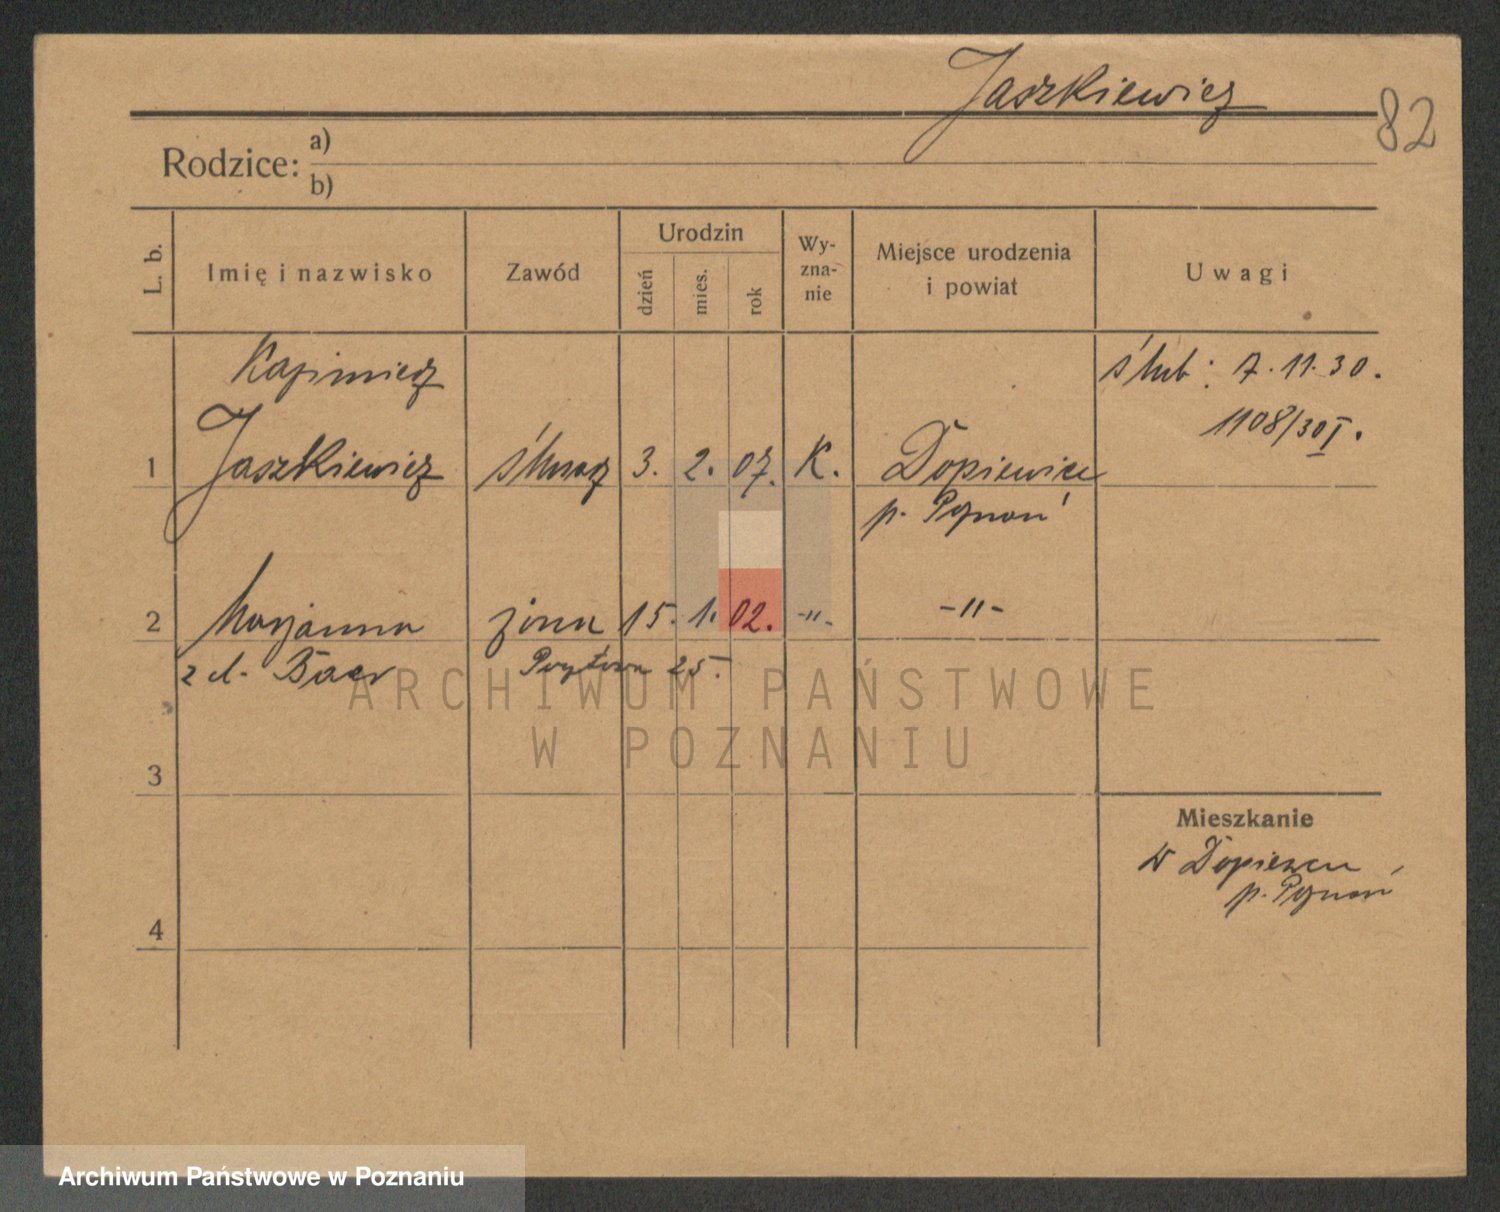 Jaszkiewicz
82
Rodzice: a)
b)
L. b.
Imię i nazwisko
Zawód
Urodzin
dzień
mies.
rok
Wy-
zna-
nie
Miejsce urodzenia
i powiat
Uwagi
Kazimierz
ślub: 7.11.30.
1108/30 I.
1 Jaszkiewicz ślusarz 3. 2. 07. K. Dopiewice
p. Poznań
2 Marjanna żona 15. 1. 02. -"-. -"-
z d. Baer 25.
ARCHIWUM PAŃSTWOWE
W POZNANIU
3
Mieszkanie
w Dopiewcu
p. Poznań
4
Archiwum Państwowe w Poznaniu